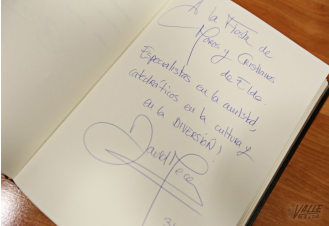 A la Fiesta de
Moros y Cristianos
de Elda.
Especialistas en la amistad,
catedráticos en la cultura y
en la DIVERSIÓN,
David
VALLE